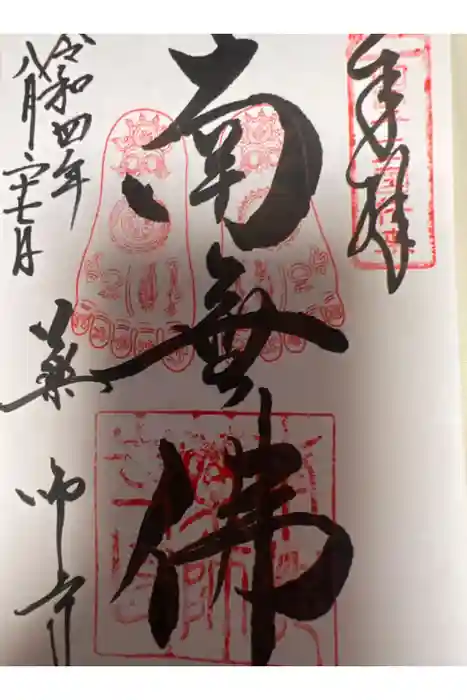 奉拝
南無佛
令和四年
八月二十七日
藥師寺